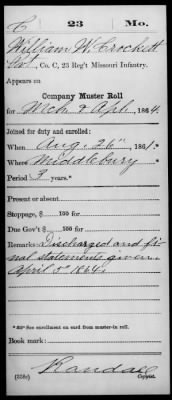 C 23 Mo.
William W. Crockett
Co. C, 23 Reg't Missouri Infantry.
Appears on
Company Muster Roll
for Mch & Apl, 1864.
Joined for duty and enrolled:
When Aug. 26", 1861.*
Where Middlebury *
Period 3 years.*
Present or absent
Stoppage, $ 100 for
Due Gov't $ 100 for
Remarks: Discharged and fi-
nal statements given
April 5" 1864.
*See enrollment on card from muster-in roll.
Book mark:
Randall
(358c) Copyist.